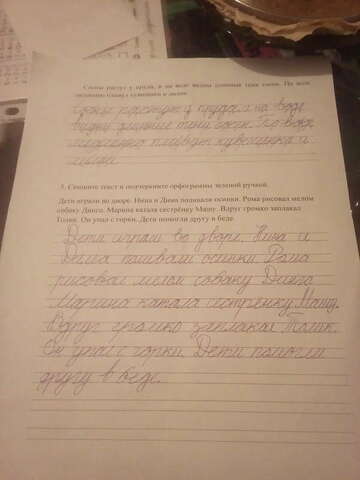 Сосны растут у пруда, и на воде видны длинные тени сосен. По воде
Сосны растут у пруда и на воде
видны длинные тени сосен. По воде
лилии.
3. Спишите текст и подчеркните орфограммы зеленой ручкой.
Дети играли во дворе. Нина и Дима поливали осинки. Рома рисовал мелом
собаку Динго. Марина катала сестрёнку Машу. Вдруг громко заплакал
Толик. Он упал с горки. Дети помогли другу в беде.
Дети играли во дворе. Нина и
Дима поливали осинки. Рома
рисовал мелом собаку Динго.
Марина катала сестрёнку Машу.
Вдруг громко заплакал Толик.
Он упал с горки. Дети помогли
другу в беде.